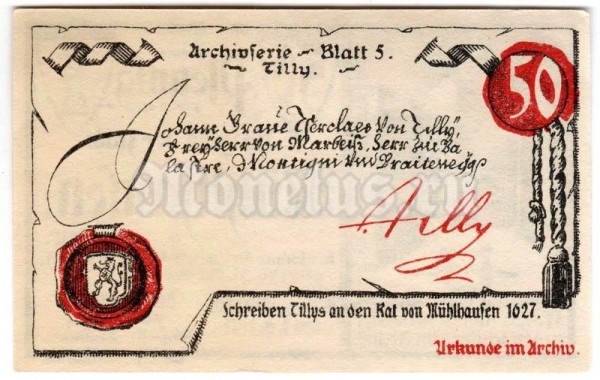 Archivserie - Blatt 5.
Tilly.
50
Johann Graue Tserclaes von Tilly,
Freyherr von Marbeiß, Herr zu Ba
lastre, Montigni und Braitenegg
Tilly
Schreiben Tillys an den Rat von Mühlhausen 1627.
Urkunde im Archiv.
Monetus.ru